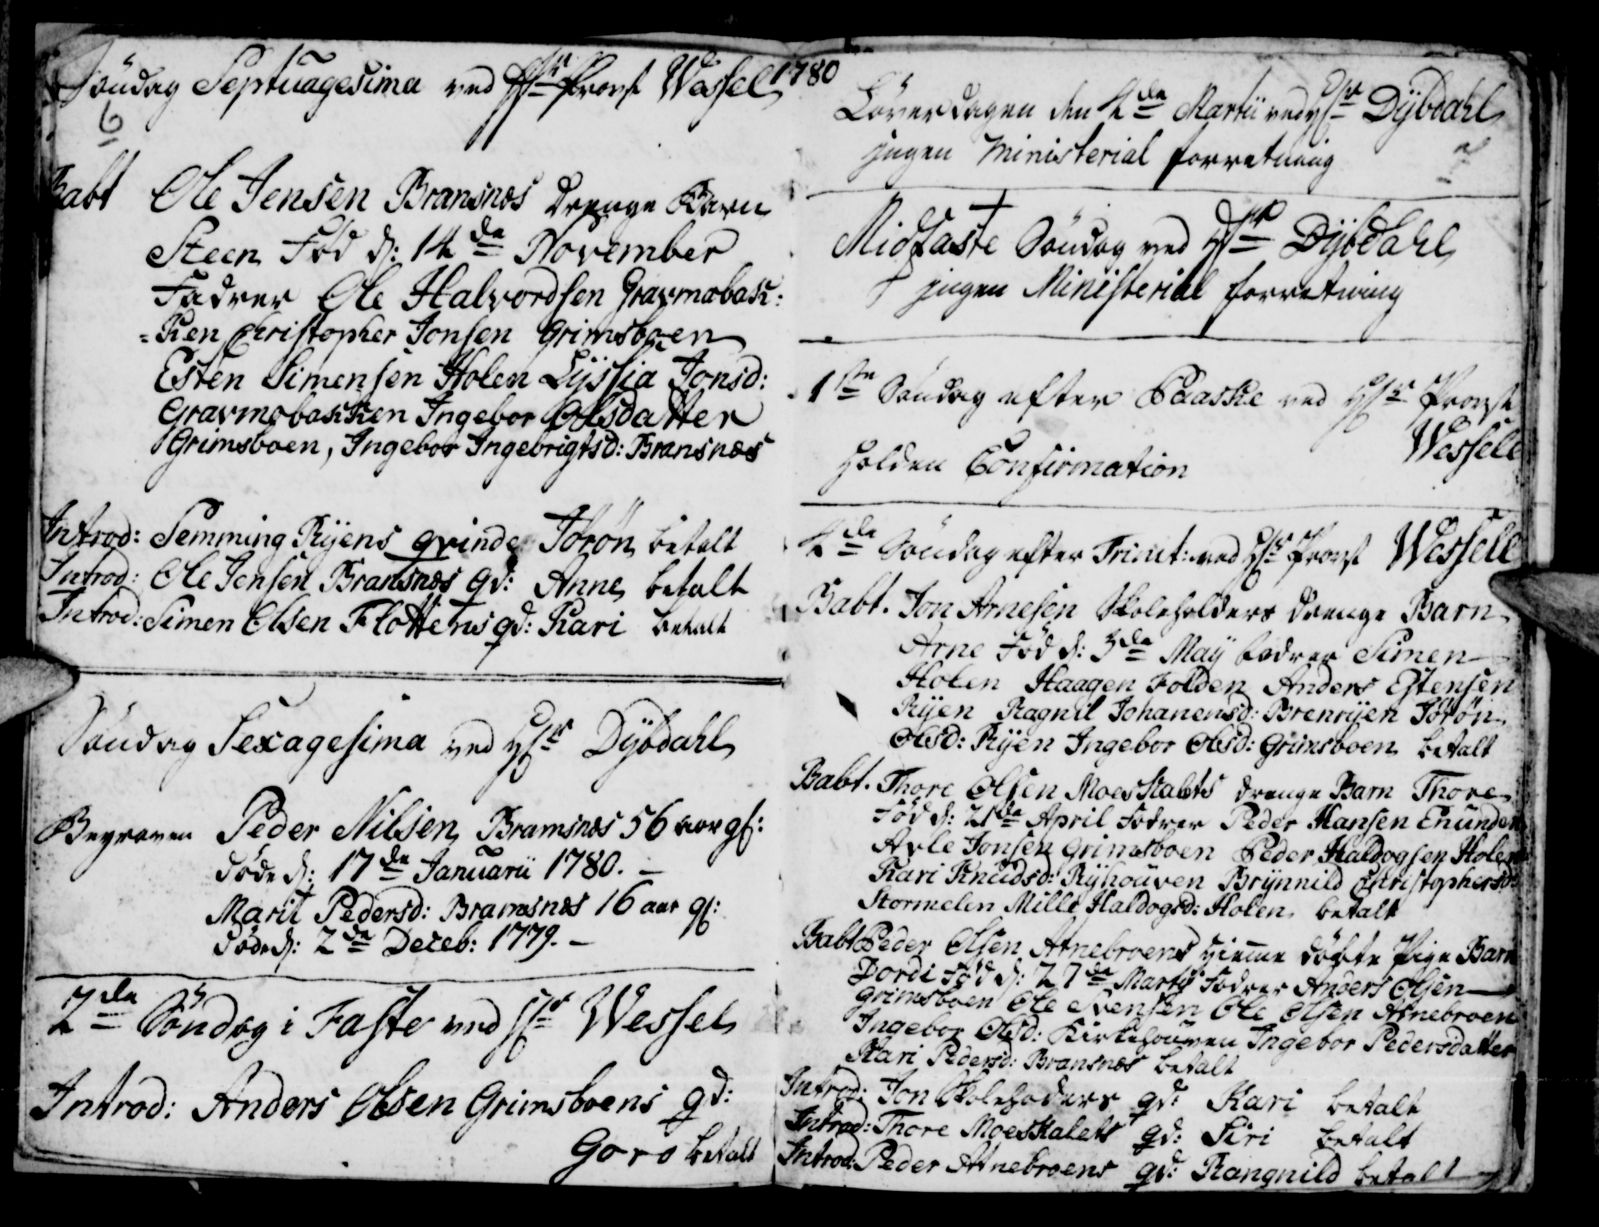 Söndag Septuagesima ved Hr Provst Wessel 1780
6
Babt Ole Jensen Bransnæs drenge Barn
Steen Föd d: 14de November
Fadrer Ole Halvordsen Gravmobak:
=ken Christopher Jonsen Grimsboen
Esten Simensen Holen Lÿssia Jonsd:
Gravmobakken Ingebor Olsdatter
Grimsboen, Ingebor Ingebrigtsd: Bransnæs
Introd: Semming Rÿens qvinde Jörön betalt
Introd: Ole Jensen Bransnæs qd: Anne betalt
Introd: Simen Olsen Flottens qd: Kari betalt
Söndag Sexagesima ved Hr Dÿbdahl
Begraven Peder Nilsen Bramsnæs 56 aar gl:
döde d: 17de Januarii 1780. —
Marit Pedersd: Bramsnæs 16 aar gl:
döde d: 2de Deceb: 1779. —
2de Söndag i Faste ved Hr Wessel
Introd: Anders Olsen Grimsboens qd:
Goro betalt
Löverdagen den 4de Martii ved Hr Dÿbdahl
ingen Ministerial forretning
7
Midfaste Söndag ved Hr Dÿbdahl
ingen Ministerial forretning
1ste Söndag efter Paaske ved Hr Provst
Wessell
holden Confirmation
4de Söndag efter Trinit: ved Hr Provst Wessell
Babt. Jon Arnesen Skoleholders drenge Barn
Arne Föd d: 3de Maÿ fadrer Simen
Holen Haagen Folden Anders Estensen
Rÿen Ragnil Johanensd: Brenrÿen Jörön
Olsd: Rÿen Ingebor Olsd: Grimsboen betalt
Babt. Thore Olsen Moeskalets drenge Barn Thore
Föd d: 21de April Fadrer Peder Hansen Enunden
Avle Jonsen Grimsboen Peder Haldogsen Holen
Kari Knudsd: Rÿhouven Brÿnnild Christophersd:
Stormelen Mille Haldogsd: Holen betalt
Babt Peder Olsen Atnebroens hieme döbte Pige Barn
Dordi Föd d: 27de Martÿ Fadrer Anders Olsen
Grimsboen Ole Svensen Ole Olsen Atnebroen
Ingebor Olsd: Kirkehouven Ingebor Pedersdatter
Kari Pedersd: Bransnæs betalt
Introd: Jon Skoleholders qd: Kari betalt
Introd: Thore Moeskalets qd: Siri betalt
Introd: Peder Atnebroens qd: Rangnild betalt